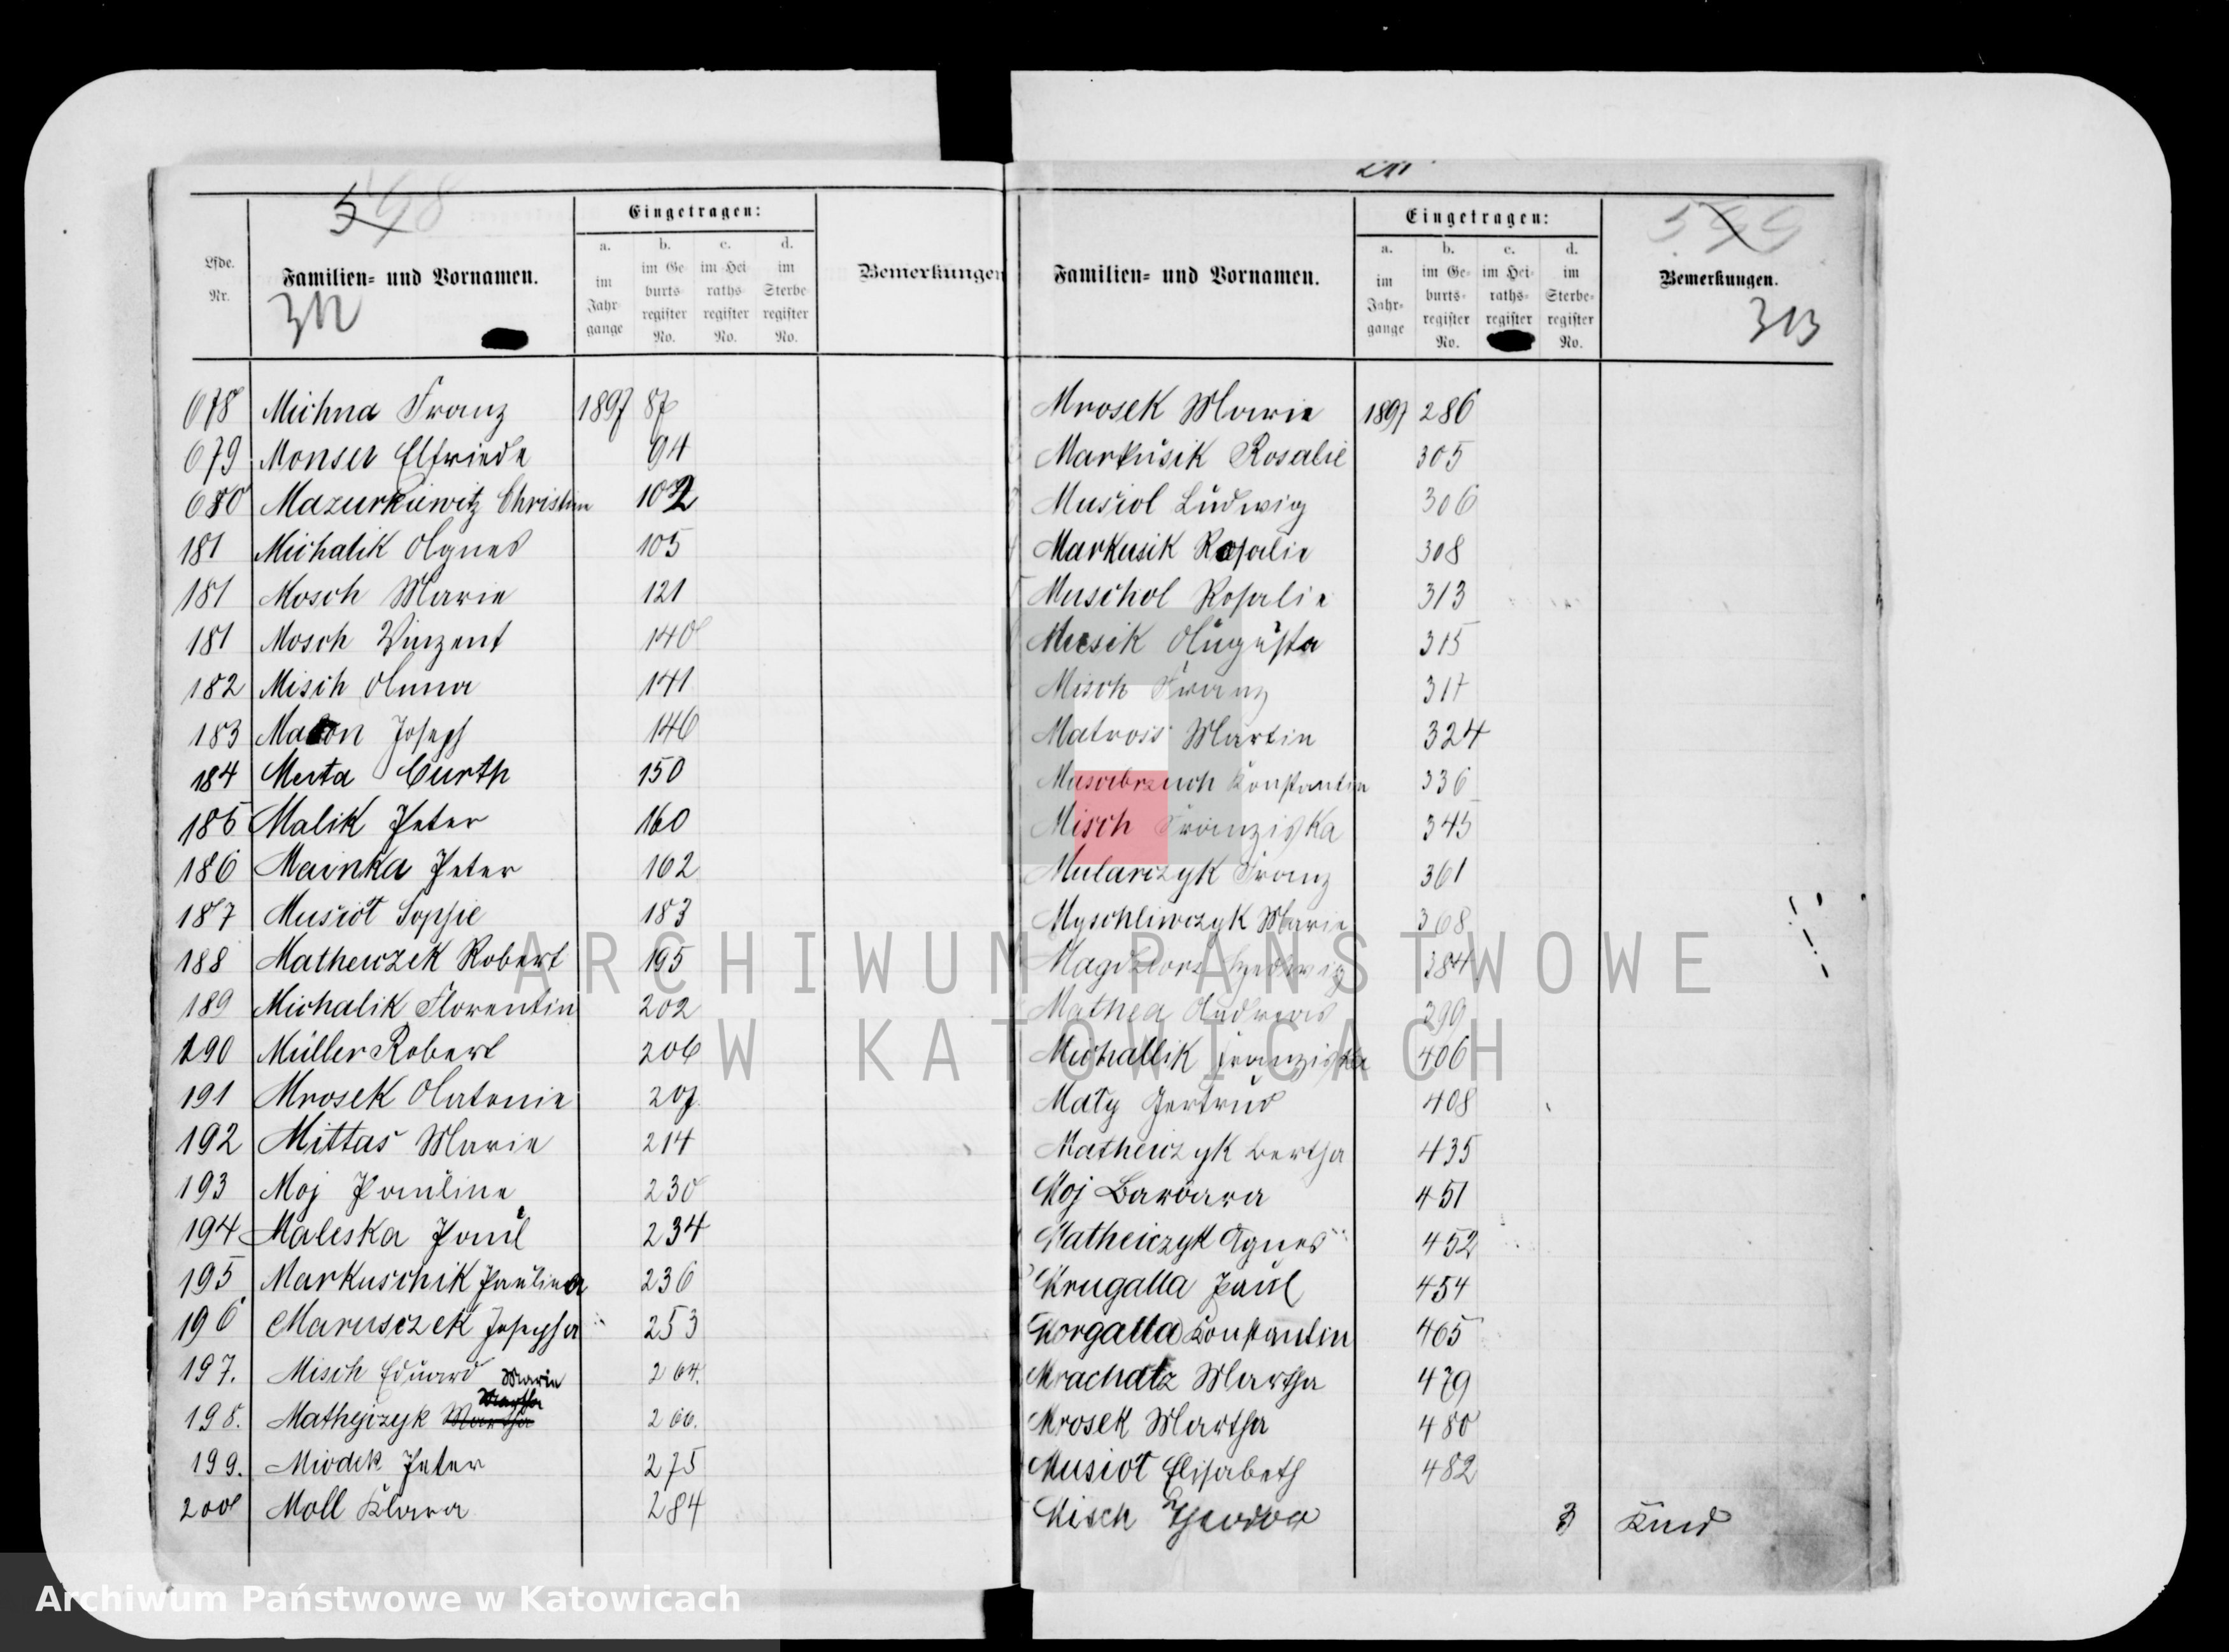 598
312
Lfde. Nr.
Familien= und Vornamen.
Eingetragen:
a. im Jahr gange
b. im Ge burts register No.
c. im Hei raths register No.
d. im Sterbe register No.
Bemerkungen
678 Michna Franz 1897 87
679 Monser Elfriede 94
680 Mazurkiewitz Christin 102
181 Michalik Agnes 105
181 Mosch Marie 121
181 Mosch Vinzent 140
182 Misch Anna 141
183 Joseph 146
184 Curth 150
185 Malik Peter 160
186 Mainka Peter 162
187 Musiol Sophie 183
188 Matheiczek Robert 195
189 Michalik Florentin 202
190 Müller Robert 206
191 Mrosek 207
192 Mittas Marie 214
193 Moj Pauline 230
194 Maleska Paul 234
195 Markuschik Paulina 236
196 Marusczek Josepha 253
197. Misch Eduard 264.
198. Mathejczyk Marie 266.
199. Miodek Peter 275
200 Moll Klara 284
599
313
Familien= und Vornamen.
Eingetragen:
a. im Jahr= gange
b. im Ge= burts= register No.
c. im Hei= raths= register
d. im Sterbe= register No.
Bemerkungen.
Mrosek Marie 1897 286
Markusik Rosalie 305
Musiol Ludwig 306
Markusik Rosalie 308
Muschol Rosalie 313
Musik Augusta 315
Misch Franz 317
Matrois Martin 324
Konstantin 336
Misch Franziska 345
Mularczyk Franz 361
Myschliwczyk Marie 368
Hedwig 384
Mathea Andreas 399
Michallik Franziska 406
Maty Gertrud 408
Matheiczyk Bertha 435
Moj Barbara 451
Matheiczyk Agnes 452
Mrugalla Paul 454
Morgalla Konstantin 465
Mrachatz Martha 479
Mrosek Martha 480
Musiol Elisabeth 482
Misch Theodor 3 Kind
ARCHIWUM PAŃSTWOWE
W KATOWICACH
Archiwum Państwowe w Katowicach